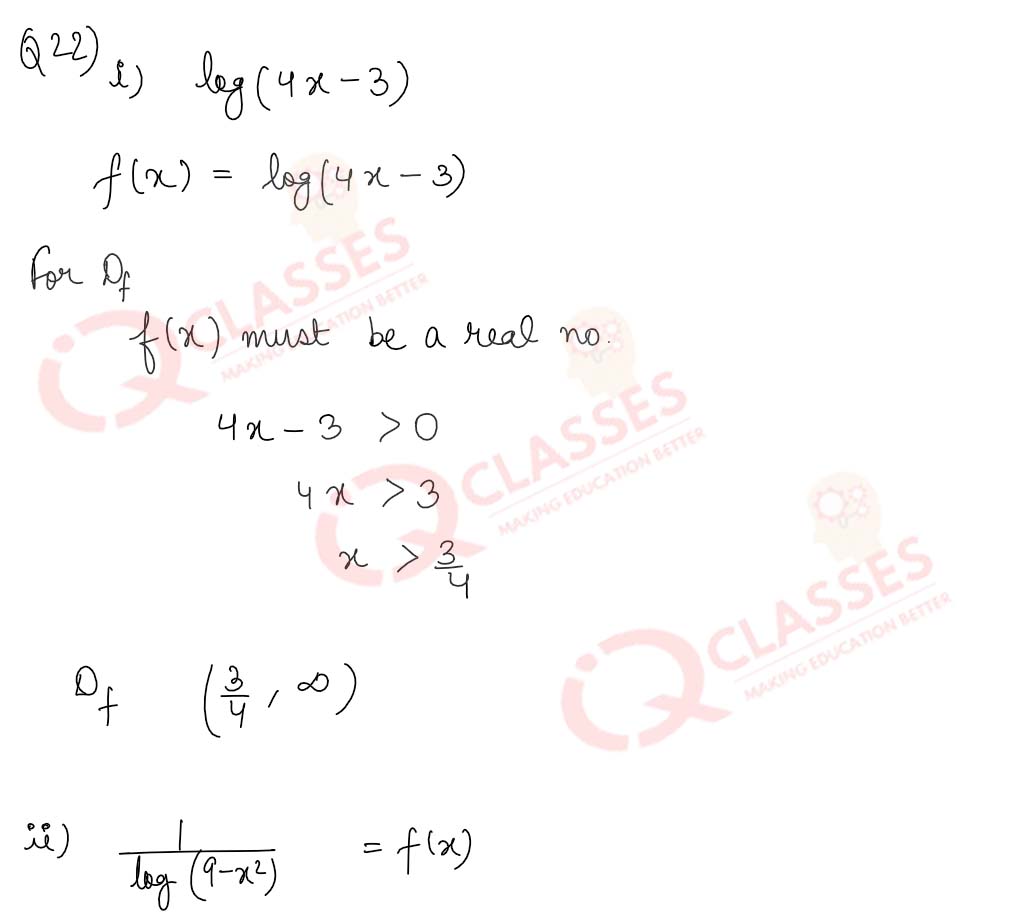 Q22) i) log(4x-3)
f(x) = log(4x-3)
For Df
f(x) must be a real no.
4x-3 >0
4x >3
x > 3/4
Df (3/4, ∞)
ii) 1/log(9-x²) = f(x)
iQ CLASSES
MAKING EDUCATION BETTER
iQ CLASSES
MAKING EDUCATION BETTER
iQ CLASSES
MAKING EDUCATION BETTER